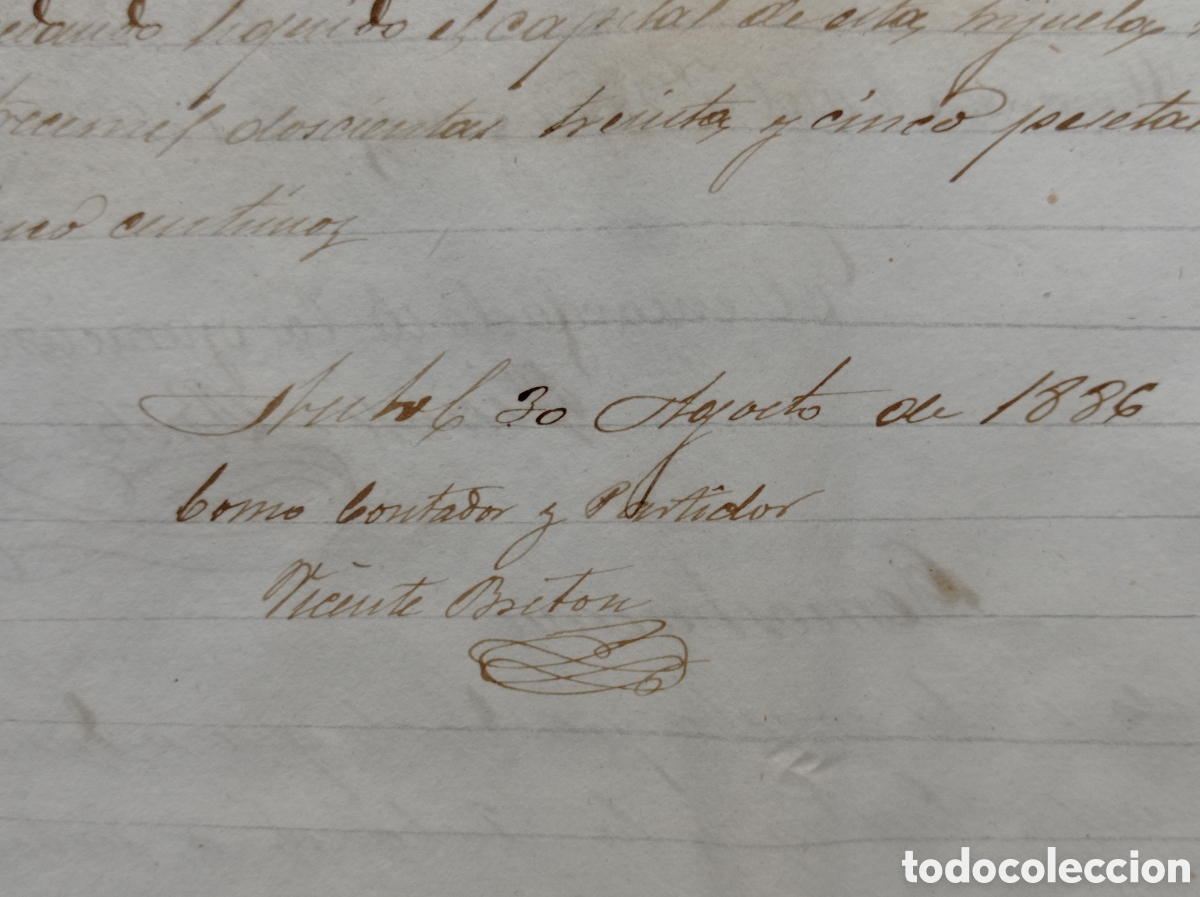 quedando liquido el capital de esta hijuela,
trecemil doscientas treinta y cinco pesetas
centimos
30 Agosto de 1886
Como Contador y Partidor
Vicente Breton
todocoleccion